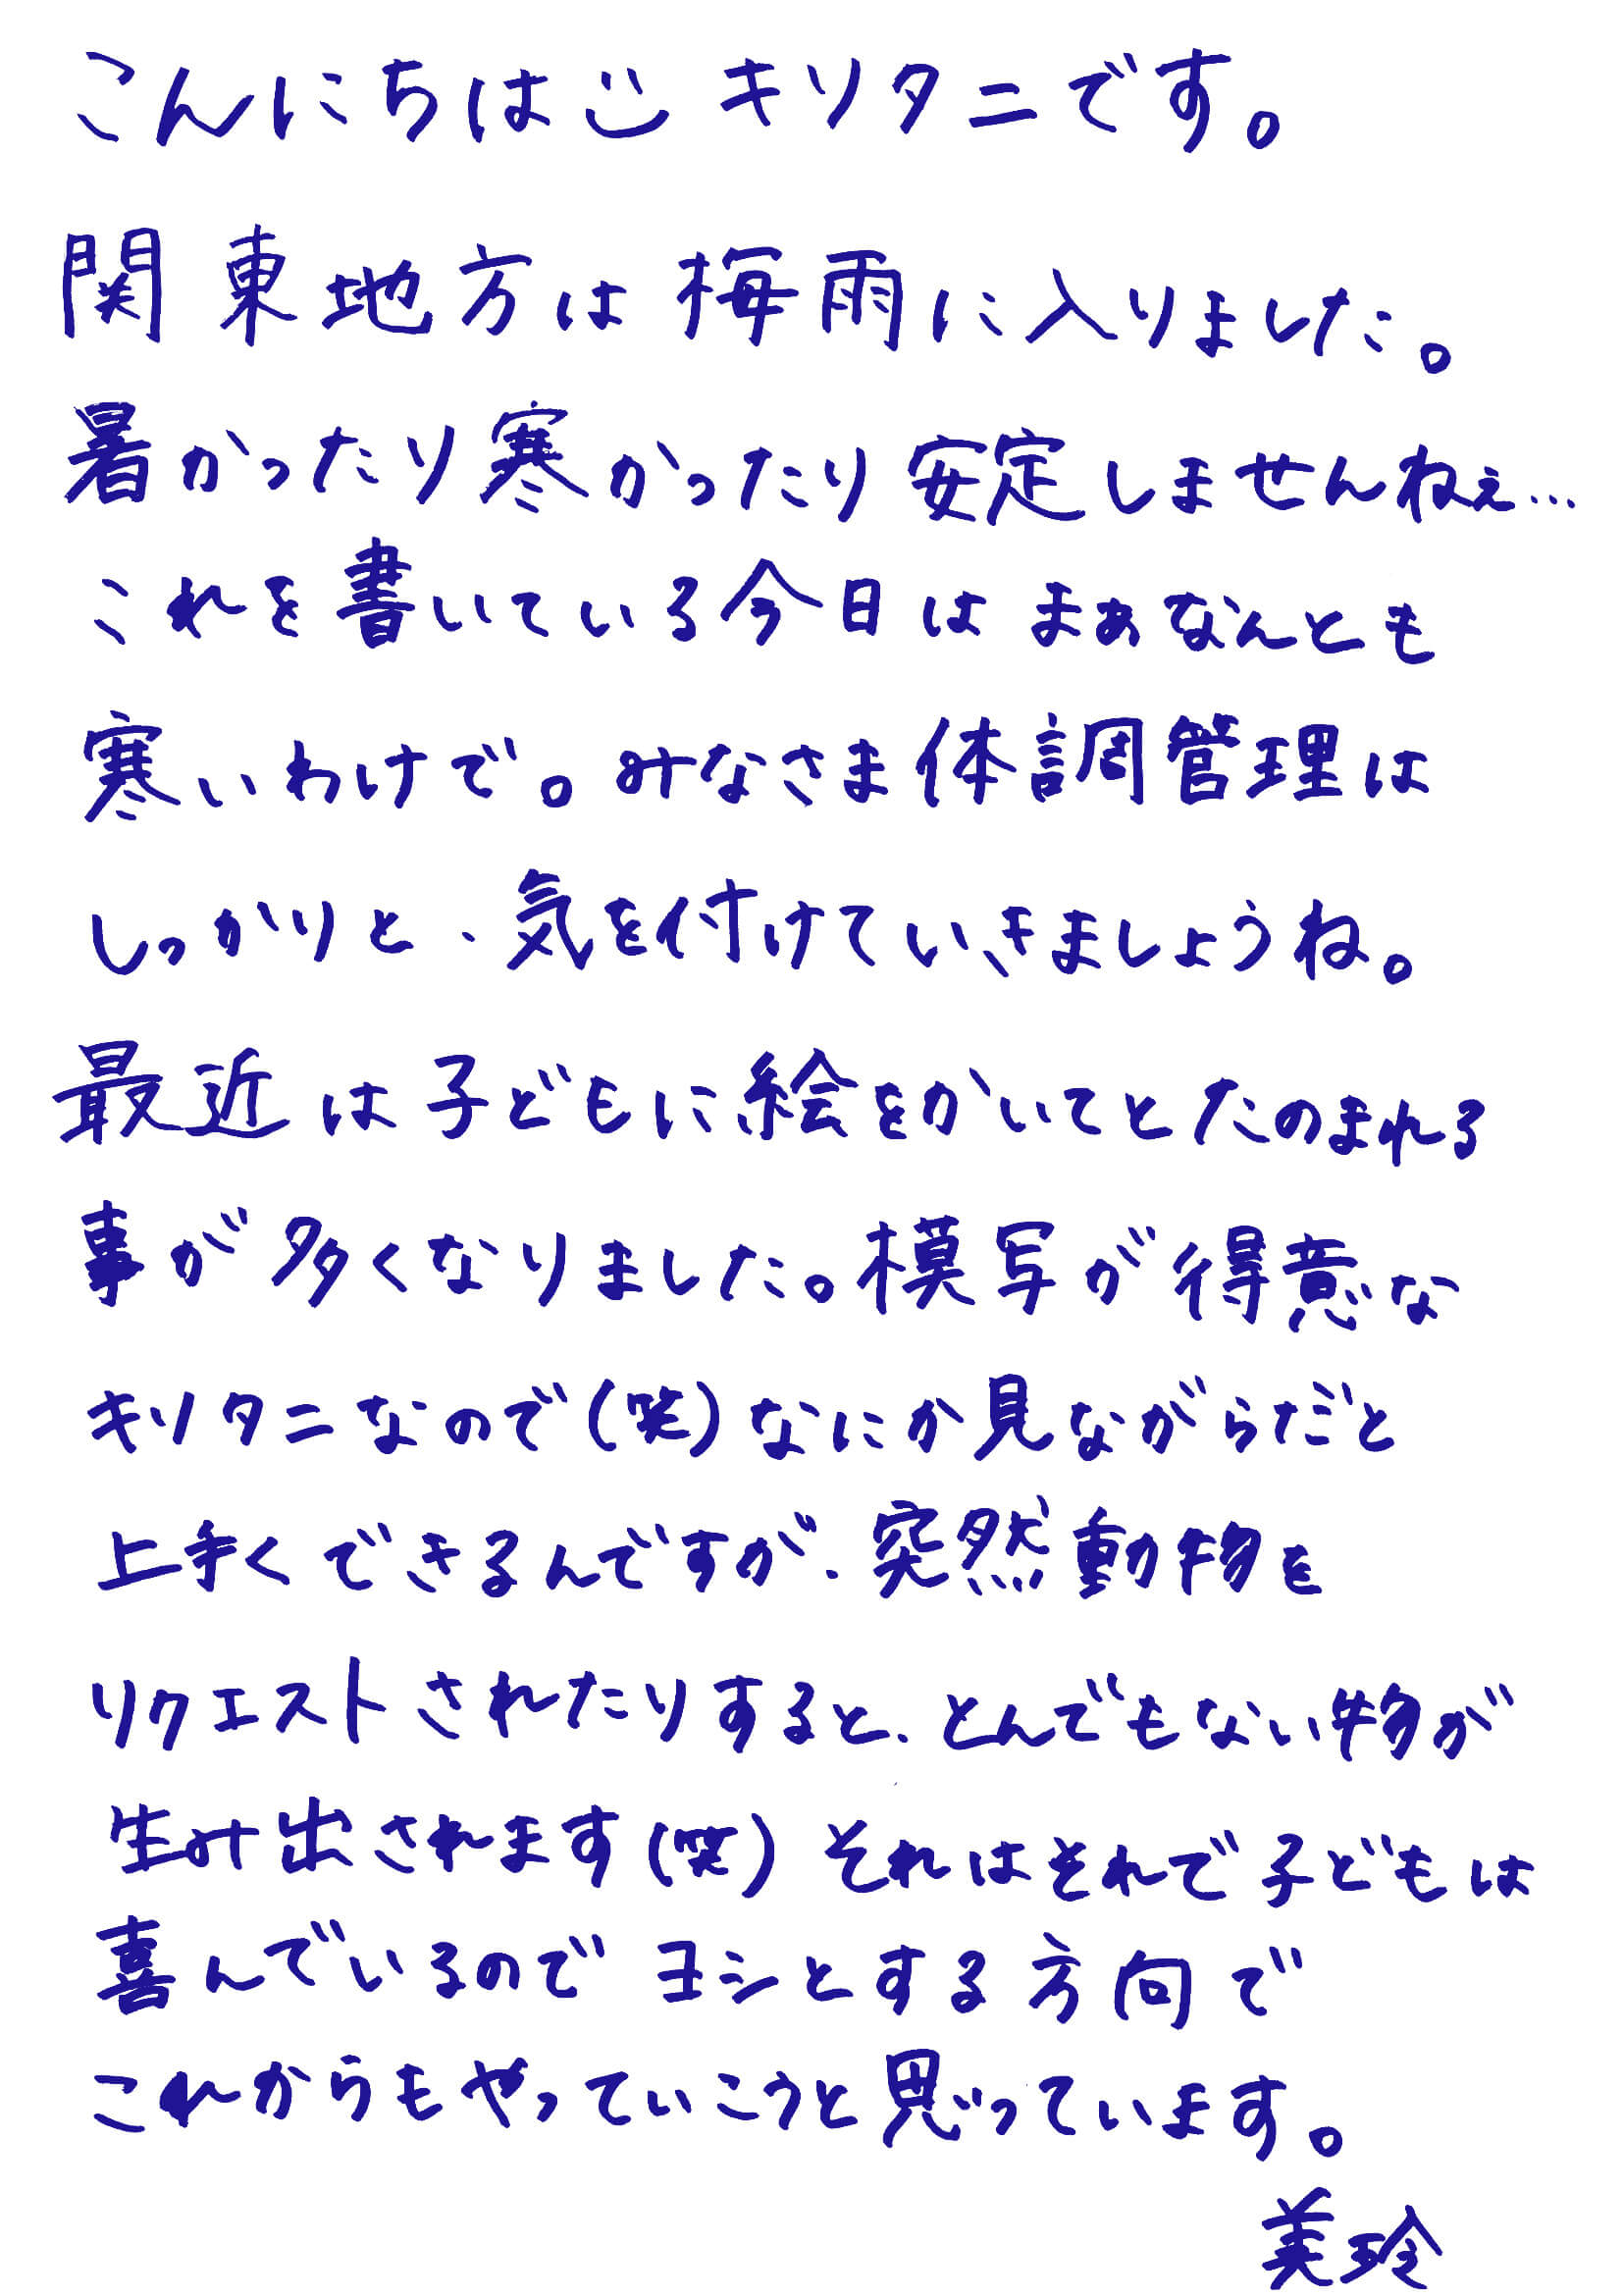 こんにちは キリタニです。
関東地方は梅雨に入りました。
暑かったり寒かったり安定しませんねぇ…
これを書いている今日は まぁなんとも
寒いわけで。みなさま体調管理は
しっかりと、気を付けていきましょうね。
最近は子どもに絵をかいてとたのまれる
事が多くなりました。模写が得意な
キリタニなので(笑)なにか見ながらだと
上手くできるんですが、突然動物を
リクエストされたりすると、とんでもない物が
生み出されます(笑) それはそれで子どもは
喜んでいるので ヨシとする方向で
これからもやっていこうと思っています。
美玲